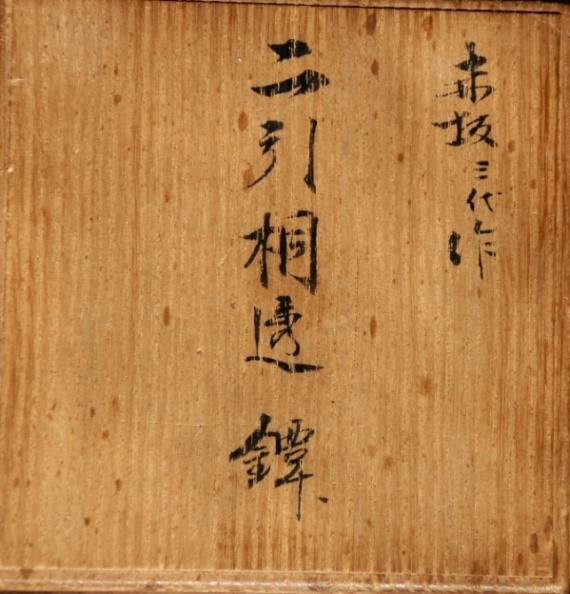 赤坂三代作
二引桐透鐔